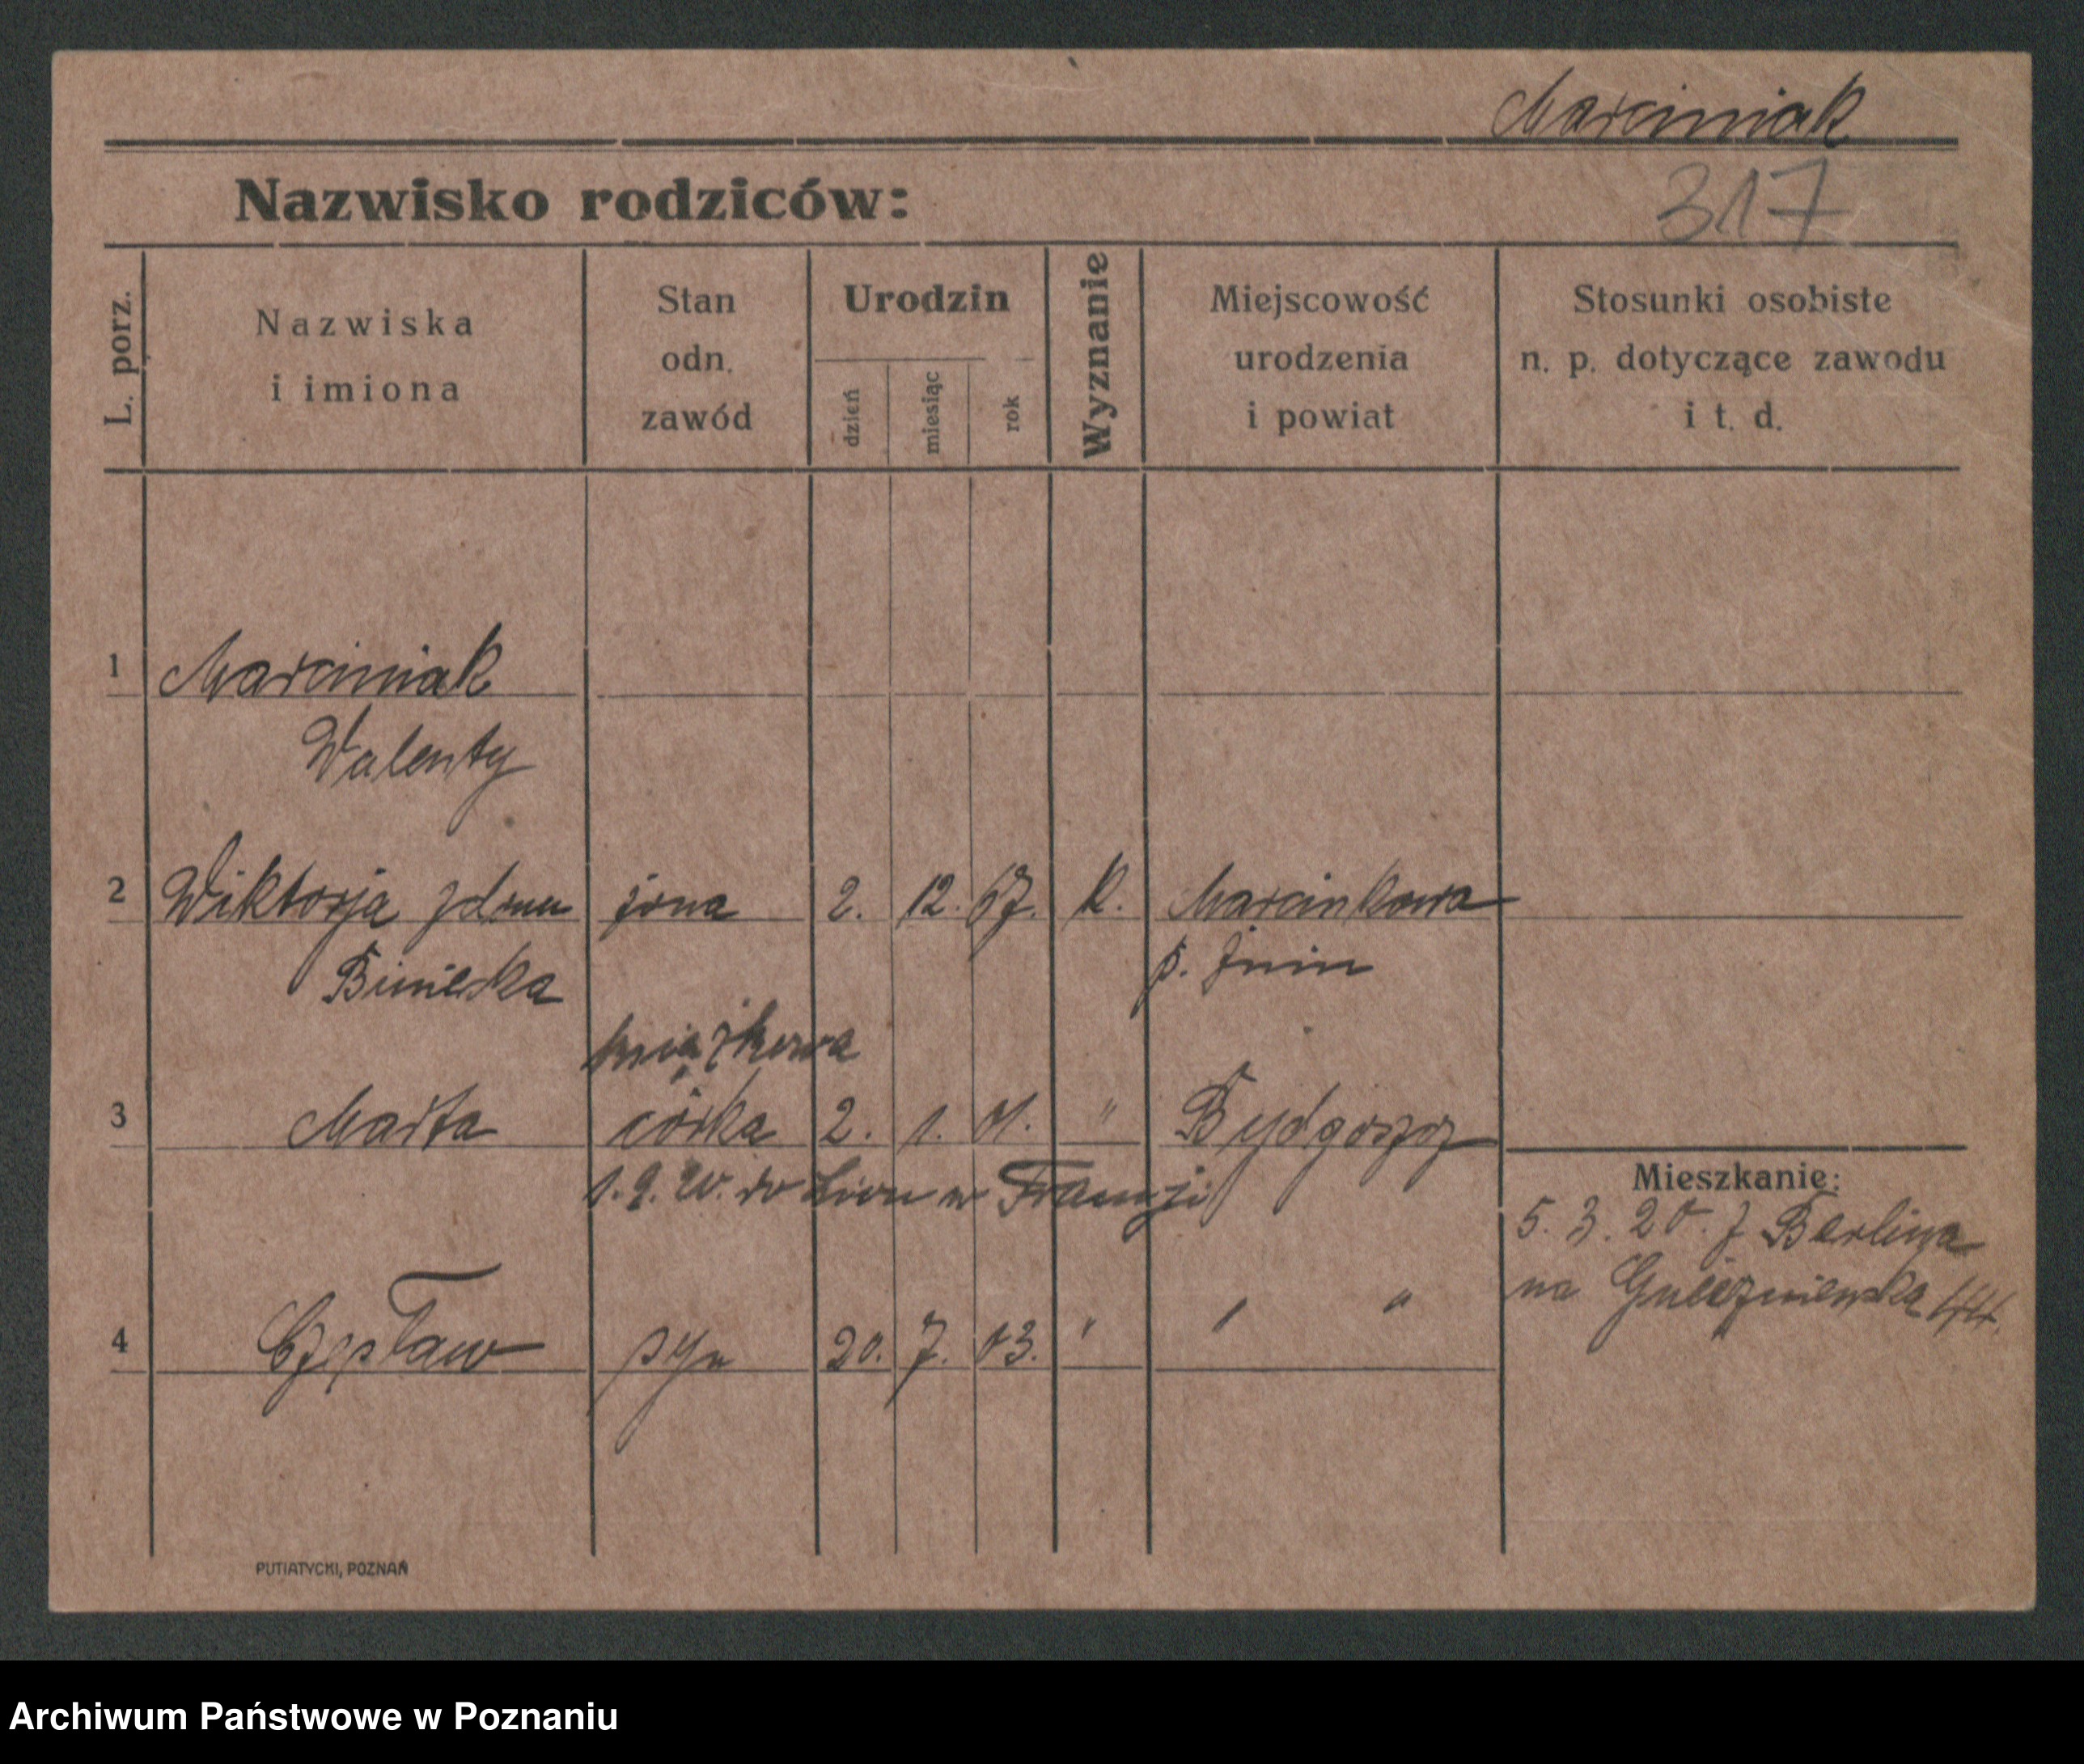 Marciniak
317
Nazwisko rodziców:
L. porz.
Nazwiska
i imiona
Stan
odn.
zawód
Urodzin
dzień
miesiąc
rok
Wyznanie
Miejscowość
urodzenia
i powiat
Stosunki osobiste
n. p. dotyczące zawodu
i t. d.
1 Marciniak
Walenty
2 Wiktorja żona 2. 12. 67. k. Marcinkowa
p. Żnin
książkowa
3 Marta córka 2. 1. 01. " Bydgoszcz
1. 9. 20. do Lion w Francji
Mieszkanie:
5. 3. 20. z Berlina
na Gnieźnieńska
4 Czesław syn 20. 7. 03. " " "
PUTIATYCKI, POZNAŃ
Archiwum Państwowe w Poznaniu